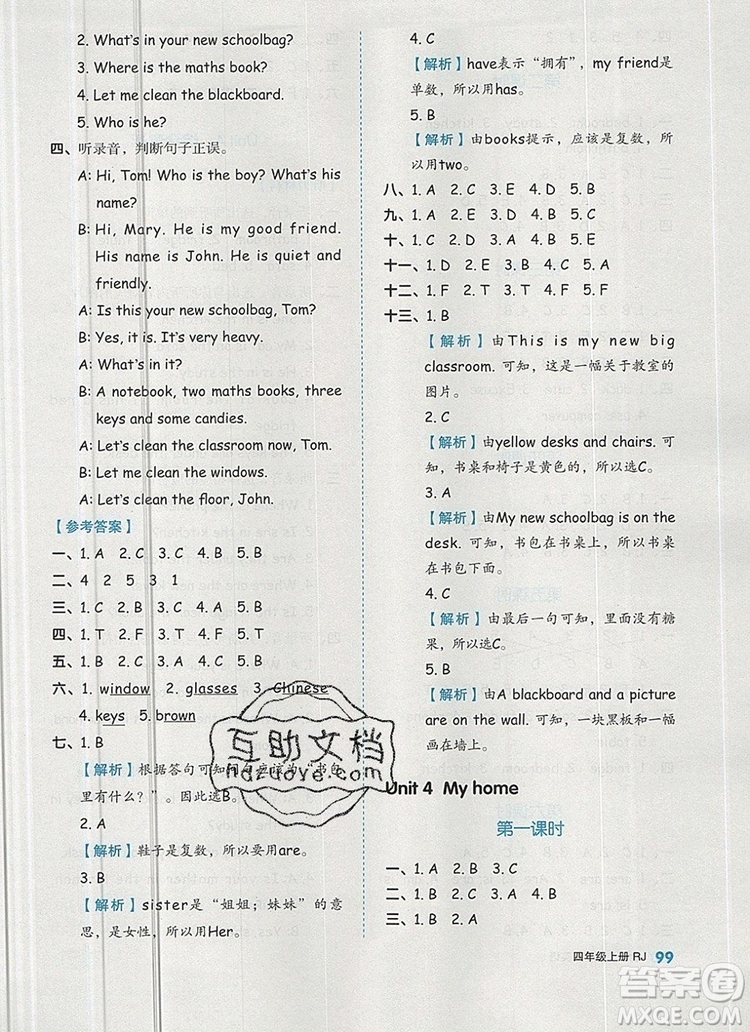 2. What's in your new schoolbag?
3. Where is the maths book?
4. Let me clean the blackboard.
5. Who is he?
四、听录音，判断句子正误。
A: Hi, Tom! Who is the boy? What's his
name?
B: Hi, Mary. He is my good friend.
His name is John. He is quiet and
friendly.
A: Is this your new schoolbag, Tom?
B: Yes, it is. It's very heavy.
A: What's in it?
B: A notebook, two maths books, three
keys and some candies.
A: Let's clean the classroom now, Tom.
B: Let me clean the windows.
A: Let's clean the floor, John.
【参考答案】
一、1. A 2. C 3. C 4. B 5. B
二、4 2 5 3 1
三、1. C 2. B 3. C 4. B 5. C
四、1. T 2. F 3. T 4. F 5. F
五、1. B 2. A 3. C 4. B 5. B
六、1. window 2. glasses 3. Chinese
4. keys 5. brown
七、1. B
【解析】根据答句可知问句应该为“书包
里有什么？”。因此选B。
2. A
【解析】鞋子是复数，所以要用are。
3. B
【解析】sister是“姐姐；妹妹”的意
思，是女性，所以用Her。
4. C
【解析】have表示“拥有”，my friend是
单数，所以用has。
5. B
【解析】由books提示，应该是复数，所
以用two。
八、1. A 2. C 3. E 4. D 5. B
九、1. A 2. D 3. E 4. C 5. B
十、1. C 2. E 3. A 4. D 5. B
十一、1. D 2. A 3. E 4. C 5. B
十二、1. F 2. T 3. T 4. F 5. F
十三、1. B
【解析】由This is my new big
classroom. 可知，这是一幅关于教室的
图片。
2. C
【解析】由yellow desks and chairs. 可
知，书桌和椅子是黄色的，所以选C。
3. A
【解析】由My new schoolbag is on the
desk. 可知，书包在书桌上，所以书桌
在书包下面。
4. C
【解析】由最后一句可知，里面没有糖
果，所以选C。
5. B
【解析】由A blackboard and a picture
are on the wall. 可知，一块黑板和一幅
画在墙上。
Unit 4 My home
第一课时
一、1. A 2. B 3. C
二、1. B 2. C 3. A 4. A 5. B
三、1. B 2. A
四年级上册 RJ 99
互助文档
hdzuoye.com
答案圈
MXQE.COM